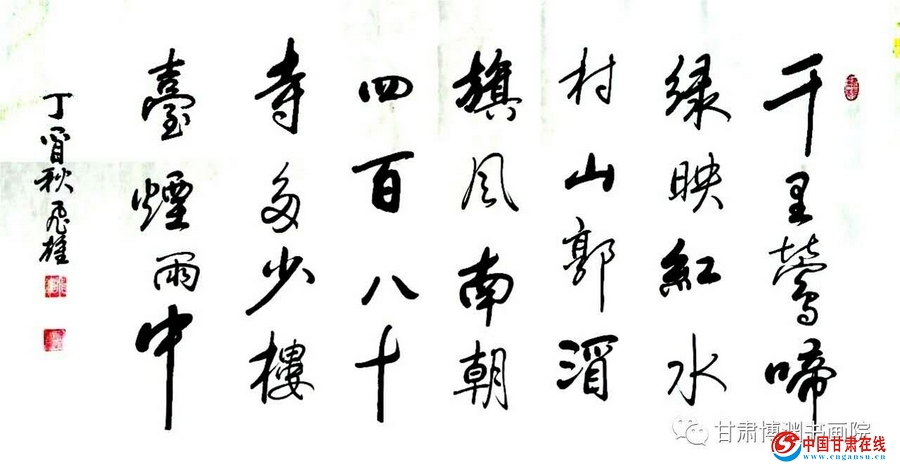 千里鶯啼
绿映紅水
村山郭酒
旗风南朝
四百八十
寺多少樓
臺煙雨中
丁酉秋飛雄
甘肃博渊书画院
中国甘肃在线
www.cngansu.cn